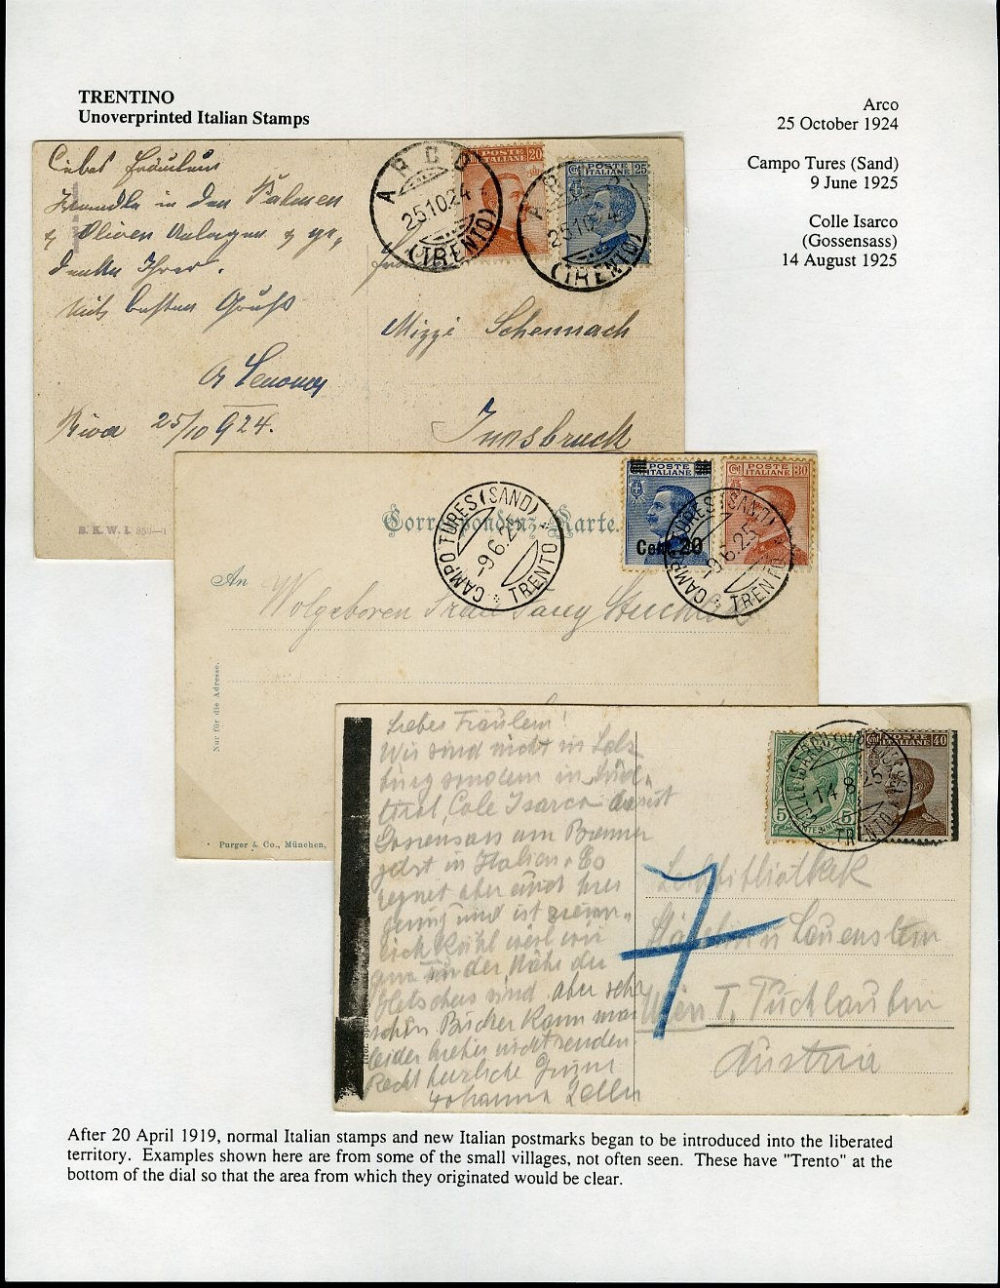 TRENTINO
Unoverprinted Italian Stamps
Arco
25 October 1924
Campo Tures (Sand)
9 June 1925
Colle Isarco
(Gossensass)
14 August 1925
Liebes Fräulein
in den Palmen
& Oliven Anlagen & ge,
denke Ihrer.
Mit besten Gruß
Riva 25/10 924.
B. K. W. I.
ARCO
25 10 24
(TRENTO)
POSTE ITALIANE 20
POSTE ITALIANE 25
25 10 24
(TRENTO)
Mizzi Schennach
Innsbruck
Correspondenz-Karte.
CAMPO TURES (SAND)
-9 6.25
TRENTO
POSTE ITALIANE
Cent. 20
POSTE ITALIANE 30
CAMPO TURES (SAND)
-9 6.25
TRENTO
An
Wolgeboren Frau Fany
Nur für die Adresse.
Purger & Co., München,
Liebes Fräulein!
Wir sind nicht in Salz
burg sondern in Süd-
tirol, Cole Isarco
Gossensass am Brenner
jetzt in Italien. Es
regnet aber auch hier
genug und ist ziem-
lich kühl weil wir
ganz in der Nähe der
Gletscher sind, aber sehr
schön Bücher kann man
leider hieher nicht senden
Recht herzliche Grüße
Johanna
5 5
POSTE ITALIANE 40
COLLE ISARCO
14 8 25
TRENTO
Leihbibliothek
Lauenstein
Wien I, Tuchlauben
Austria
After 20 April 1919, normal Italian stamps and new Italian postmarks began to be introduced into the liberated
territory. Examples shown here are from some of the small villages, not often seen. These have "Trento" at the
bottom of the dial so that the area from which they originated would be clear.